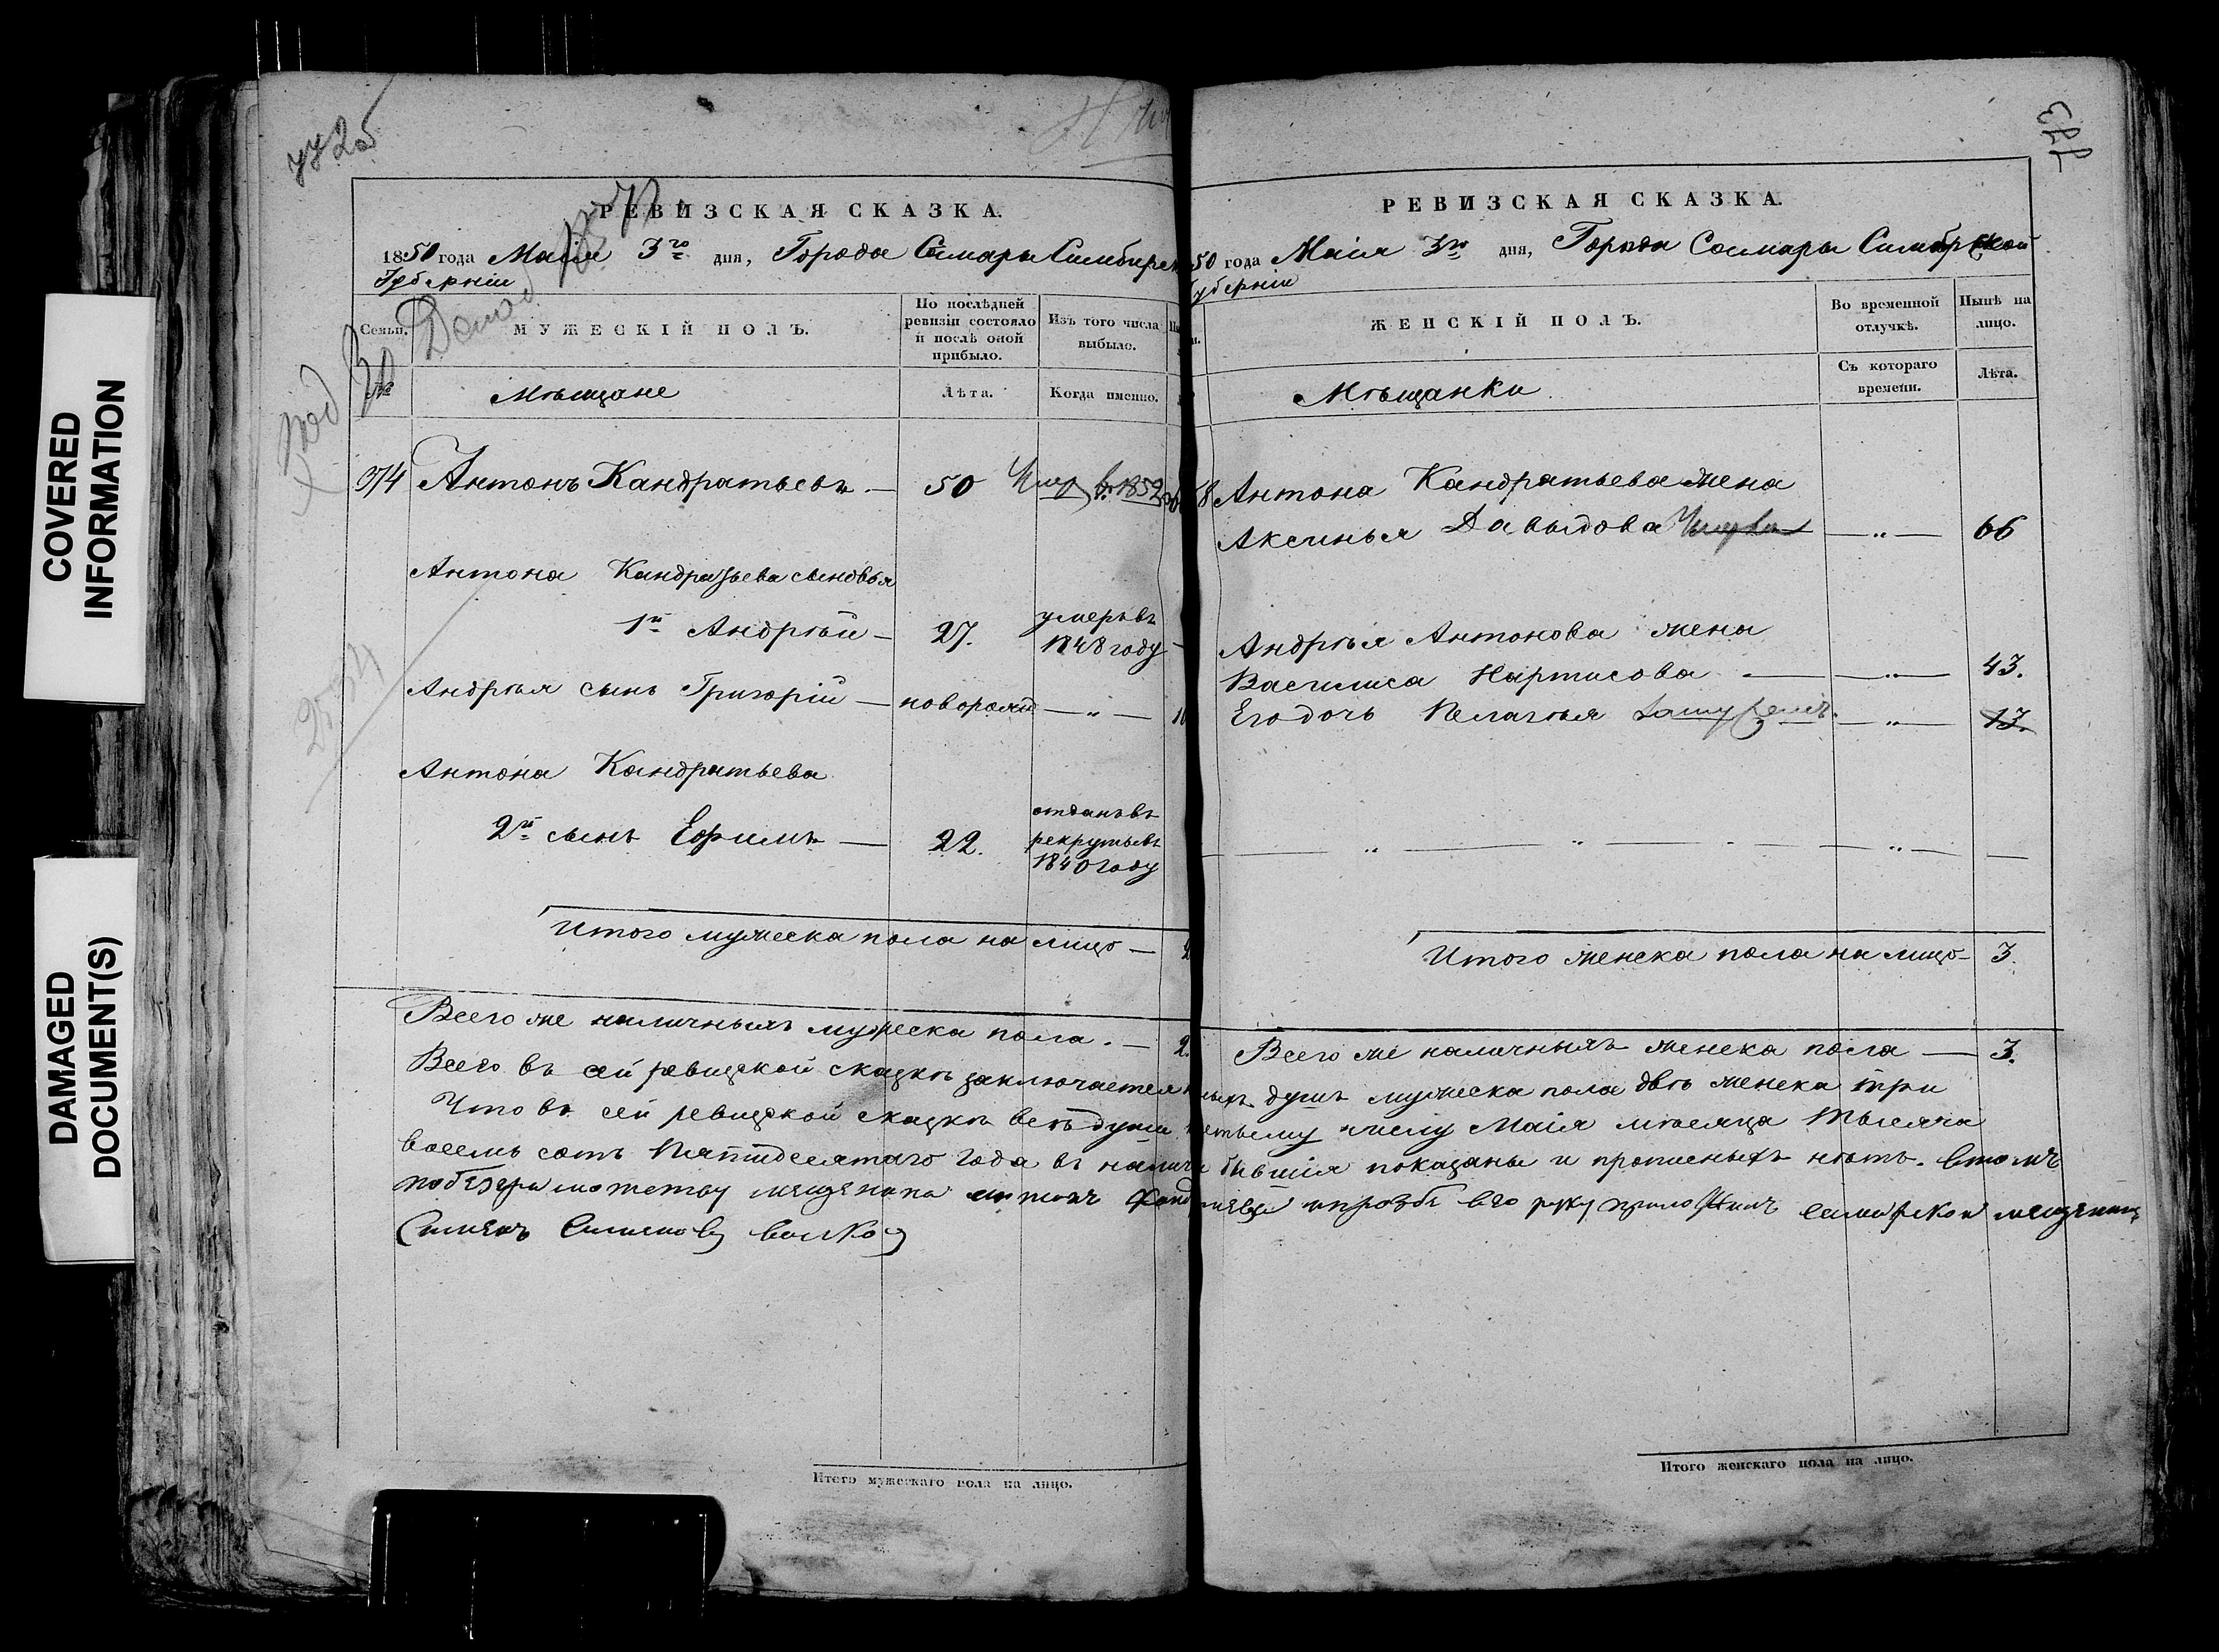 COVERED
INFORMATION
DAMAGED
DOCUMENT(S)
РЕВИЗСКАЯ СКАЗКА.
1850 года Маія 3го дня, Города Самары Симбирск
Губерніи
Семьи.
МУЖЕСКІЙ ПОЛЪ.
По послѣдней
ревизіи состояло
и послѣ оной
прибыло.
Изъ того числа
выбыло.
№
Мѣщане
Лѣта.
Когда именно.
374 Антонъ Кандратьевъ — 50 Умер в 1852
Антона Кандратьева сыновья
1й Андрѣй — 27. умеръ въ
1848 году
Андрѣя сынъ Григорій — новорожд — „ —
Антона Кандратьева
2й сынъ Ефимъ — 22. отданъ въ
рекруты въ
1840 году
Итого мужеска пола на лицо — 2
Всего же наличныхъ мужеска пола. — 2.
Всего въ сей ревизской сказкѣ заключается
Что въ сей ревизской сказкѣ всѣ души
восемь сотъ Пятидесятаго года въ
РЕВИЗСКАЯ СКАЗКА.
50 года Маія 3го дня, Города Самары Симбрской
Губерніи
ЖЕНСКІЙ ПОЛЪ.
Во временной
отлучкѣ.
Нынѣ на
лицо.
Мѣщанки
Съ котораго
времени.
Лѣта.
Антона Кандратьева жена
Аксинья Давыдова — „ — 66
Андрѣя Антонова жена
Василиса Нартисова — „ — 43.
Его дочь Пелагѣя замужемъ — „ — 17.
Итого женска пола на лицо — 3.
Всего же наличныхъ женска пола — 3.
душъ мужеска пола двѣ женска три
числу Маія мѣсяца Тысяча
бывшія показаны и прописныхъ нѣтъ. Втомъ
руку приложилъ самарской
Итого мужескаго пола на лицо.
Итого женскаго пола на лицо.